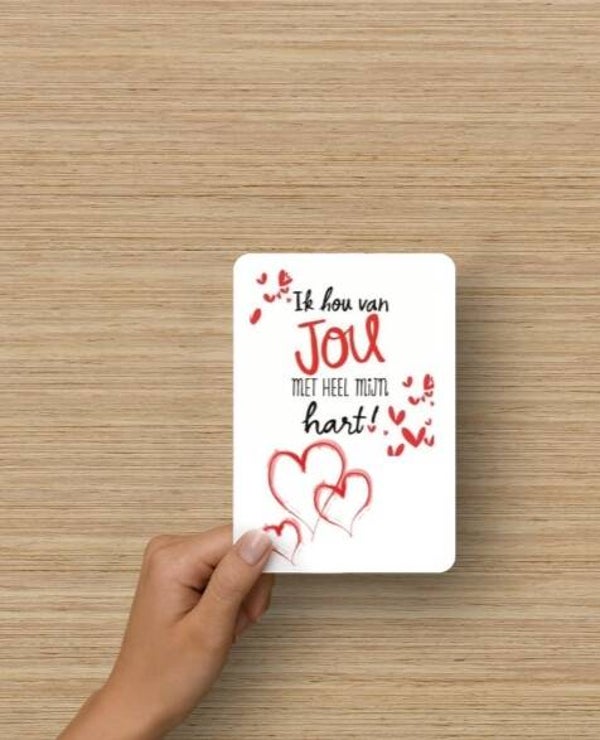 Ik hou van
JOU
MET HEEL MIJN
hart!